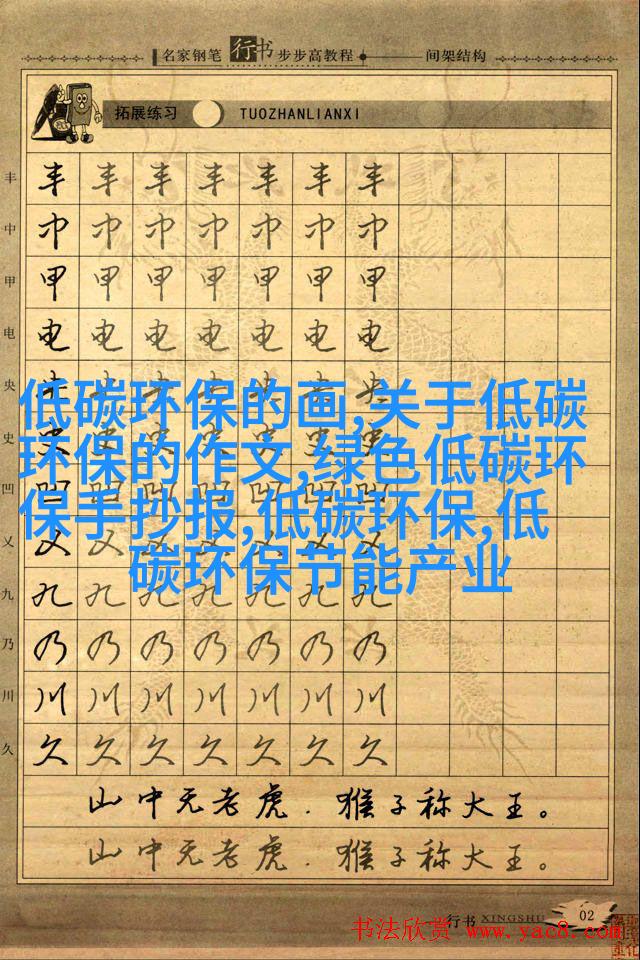 名家钢笔 行书 步步高教程 间架结构
拓展练习 TUOZHANLIANXI
丰 丰 丰 丰 丰 丰 丰 丰
中 中 中 中 中 中 中 中
甲 甲 甲 甲 甲 甲 甲 甲
电 电 电 电 电 电 电 电
央 央 央 央 央 央 央 央
低碳环保的画,关于低碳
史 史 史 史 史 史 史 史
环保的作文,绿色低碳环
凹 凹 凹 凹 凹 凹 凹 凹
保手抄报,低碳环保,低
乂 乂 乂 乂 乂 乂 乂 乂
碳环保节能产业
九 九 九 九 九 九 九 九
乃 乃 乃 乃 乃 乃 乃 乃
川 川 川 川 川 川 川 川
久 久 久 久 久 久 久 久
山中无老虎．猴子称大王。
山中无老虎．猴子称大王。
行书 XINGSHU 02
书法欣赏 www.yac8.com